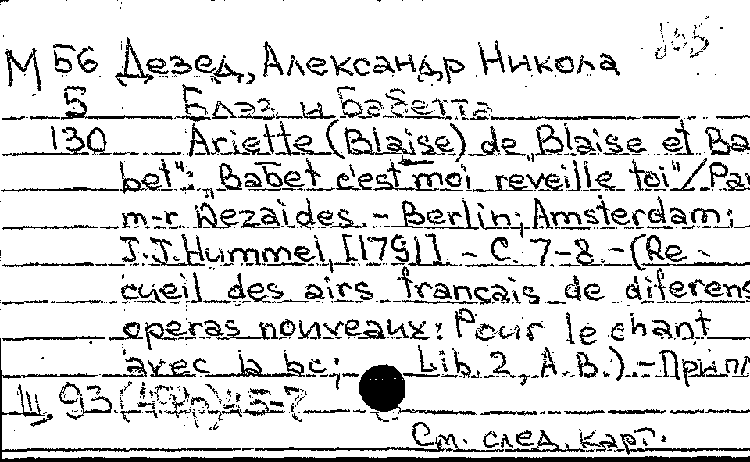 М 56 Дезед, Александр Никола
5 Блэз и Бабетта
130 Ariette (Blaise) de „Blaise et Ba
bet": „Babet c'est moi reveille toi"/Par
m-r Dezaides. - Berlin; Amsterdam;
J.J. Hummel, [1791]. - С. 7-8. - (Re -
cueil des airs francais de diferens
operas nouveaux: Pour le chant
avec la bc; Lib. 2, A.B.). - Припл
III, 93 45-7
См. след. карт.